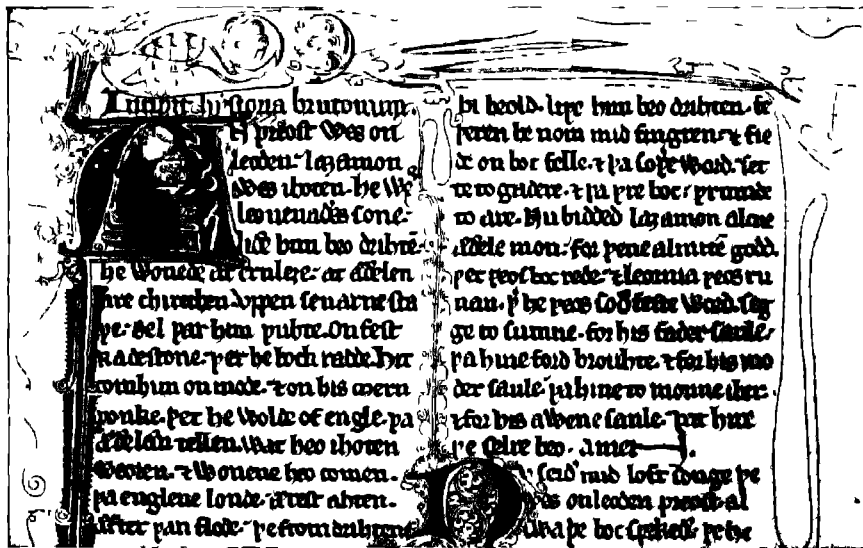 Incipit hystoria brutonum.
AN preost wes on
leoden. laȝamon
wes ihoten. he wes
leouenaðes sone.
liðe him beo drihtē.
he wonede at ernleȝe. at æðelen
are chirechen. vppen seuarne sta
þe. sel þar him þuhte. on fest
radestone. þer he bock radde. hit
com him on mode. ⁊ on his mern
þonke. þet he wolde of engle. þa
æðelæn tellen. wat heo ihoten
weoren. ⁊ wonene heo comen.
þa englene londe. ærest ahten.
æfter þan flode. þe from drihtene
bi heold. liþe him beo drihten. fe
þeren he nom mid fingren. ⁊ fie
de on boc felle. ⁊ þa soþe word. set
te to gadere. ⁊ þa þre boc. þrumde
to are. Nu bidded laȝamon alcne
æðele mon. for þene almitē godd.
þet þeos boc rede. ⁊ leornia þeos ru
nan. þ he þeos soðfeste word. seg
ge to sumne. for his fader saule.
þa hine forð brouhte. ⁊ for his mo
der saule. þa hine to monne iber.
⁊ for his awene saule. þat hire
þe selre beo. amen.
Nv seið mid loft songe þe
wes on leoden preost. al
swa þe boc spekeð. þe he